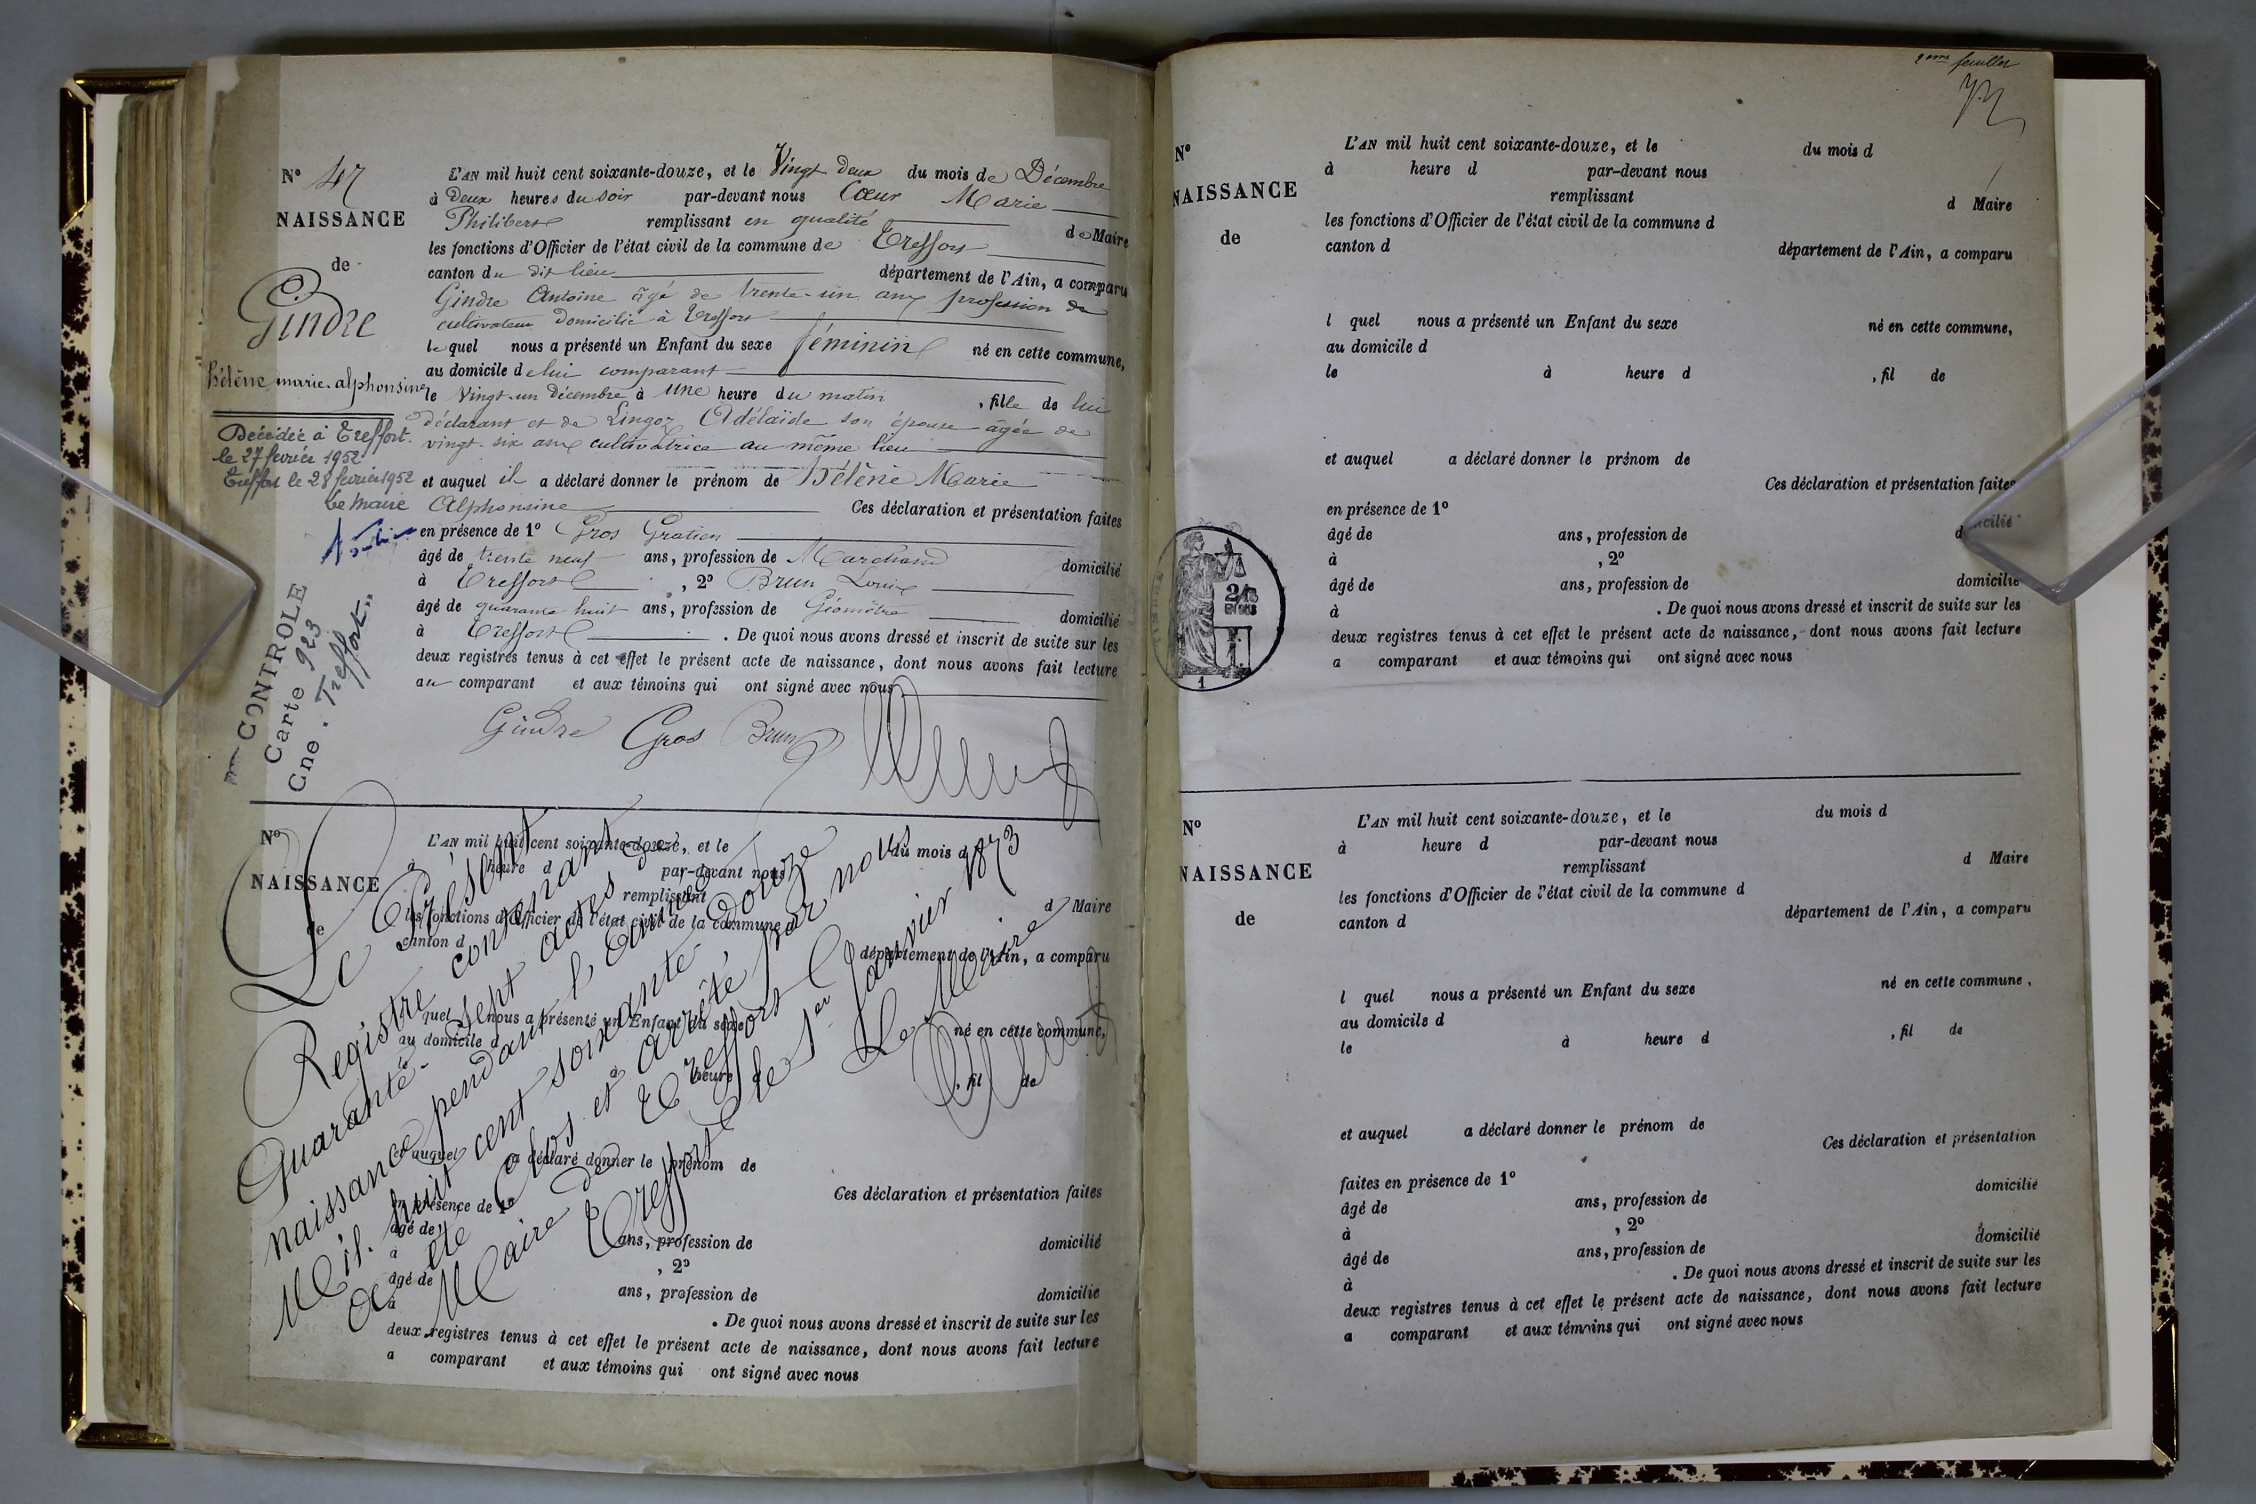 N° 47
NAISSANCE
de
Gindre
hélène marie alphonsine
Décédée à Treffort
le 27 février 1952
Treffort le 28 février 1952
Le Maire
CONTROLE
Carte 923
Cne. Treffort
L'AN mil huit cent soixante-douze, et le Vingt deux du mois de Décembre
à Deux heures du soir par-devant nous Cœur Marie
Philibert remplissant en qualité de Maire
les fonctions d'Officier de l'état civil de la commune de Treffort
canton du dit lieu département de l'Ain, a comparu
Gindre Antoine âgé de trente-un ans profession de
cultivateur domicilié à Treffort
lequel nous a présenté un Enfant du sexe féminin né en cette commune,
au domicile de lui comparant
le Vingt-un décembre à une heure du matin, fille de lui
déclarant et de Lingoz Adélaïde son épouse âgée de
vingt-six ans cultivatrice au même lieu
et auquel il a déclaré donner le prénom de hélène Marie
Alphonsine Ces déclaration et présentation faites
en présence de 1° Gros Gratien
âgé de trente neuf ans, profession de Marchand domicilié
à Treffort, 2° Brun Louis
âgé de quarante huit ans, profession de Géomètre domicilié
à Treffort. De quoi nous avons dressé et inscrit de suite sur les
deux registres tenus à cet effet le présent acte de naissance, dont nous avons fait lecture
au comparant et aux témoins qui ont signé avec nous
Gindre Gros Brun
N°
NAISSANCE
de
L'AN mil huit cent soixante-douze, et le du mois d
à heure d par-devant nous
remplissant d Maire
les fonctions d'Officier de l'état civil de la commune d
canton d département de l'Ain, a comparu
l quel nous a présenté un Enfant du sexe né en cette commune,
au domicile d
le à heure d, fil de
et auquel a déclaré donner le prénom de
Ces déclaration et présentation faites
en présence de 1°
âgé de ans, profession de domicilié
à, 2°
âgé de ans, profession de domicilié
à. De quoi nous avons dressé et inscrit de suite sur les
deux registres tenus à cet effet le présent acte de naissance, dont nous avons fait lecture
a comparant et aux témoins qui ont signé avec nous
Le Présent
Registre contenant
Quarante-sept actes de
naissance pendant l'année
Mil huit cent soixante-douze
a été Clos et arrêté par nous
Maire de Treffort
Treffort le 1er Janvier 1873
Le Maire
2eme feuillet
N°
NAISSANCE
de
L'AN mil huit cent soixante-douze, et le du mois d
à heure d par-devant nous
remplissant d Maire
les fonctions d'Officier de l'état civil de la commune d
canton d département de l'Ain, a comparu
l quel nous a présenté un Enfant du sexe né en cette commune,
au domicile d
le à heure d, fil de
et auquel a déclaré donner le prénom de
Ces déclaration et présentation faites
en présence de 1°
âgé de ans, profession de domicilié
à, 2°
âgé de ans, profession de domicilié
à. De quoi nous avons dressé et inscrit de suite sur les
deux registres tenus à cet effet le présent acte de naissance, dont nous avons fait lecture
a comparant et aux témoins qui ont signé avec nous
1
N°
NAISSANCE
de
L'AN mil huit cent soixante-douze, et le du mois d
à heure d par-devant nous
remplissant d Maire
les fonctions d'Officier de l'état civil de la commune d
canton d département de l'Ain, a comparu
l quel nous a présenté un Enfant du sexe né en cette commune,
au domicile d
le à heure d, fil de
et auquel a déclaré donner le prénom de
Ces déclaration et présentation
faites en présence de 1° domicilié
âgé de ans, profession de
à, 2° domicilié
âgé de ans, profession de
à. De quoi nous avons dressé et inscrit de suite sur les
deux registres tenus à cet effet le présent acte de naissance, dont nous avons fait lecture
a comparant et aux témoins qui ont signé avec nous